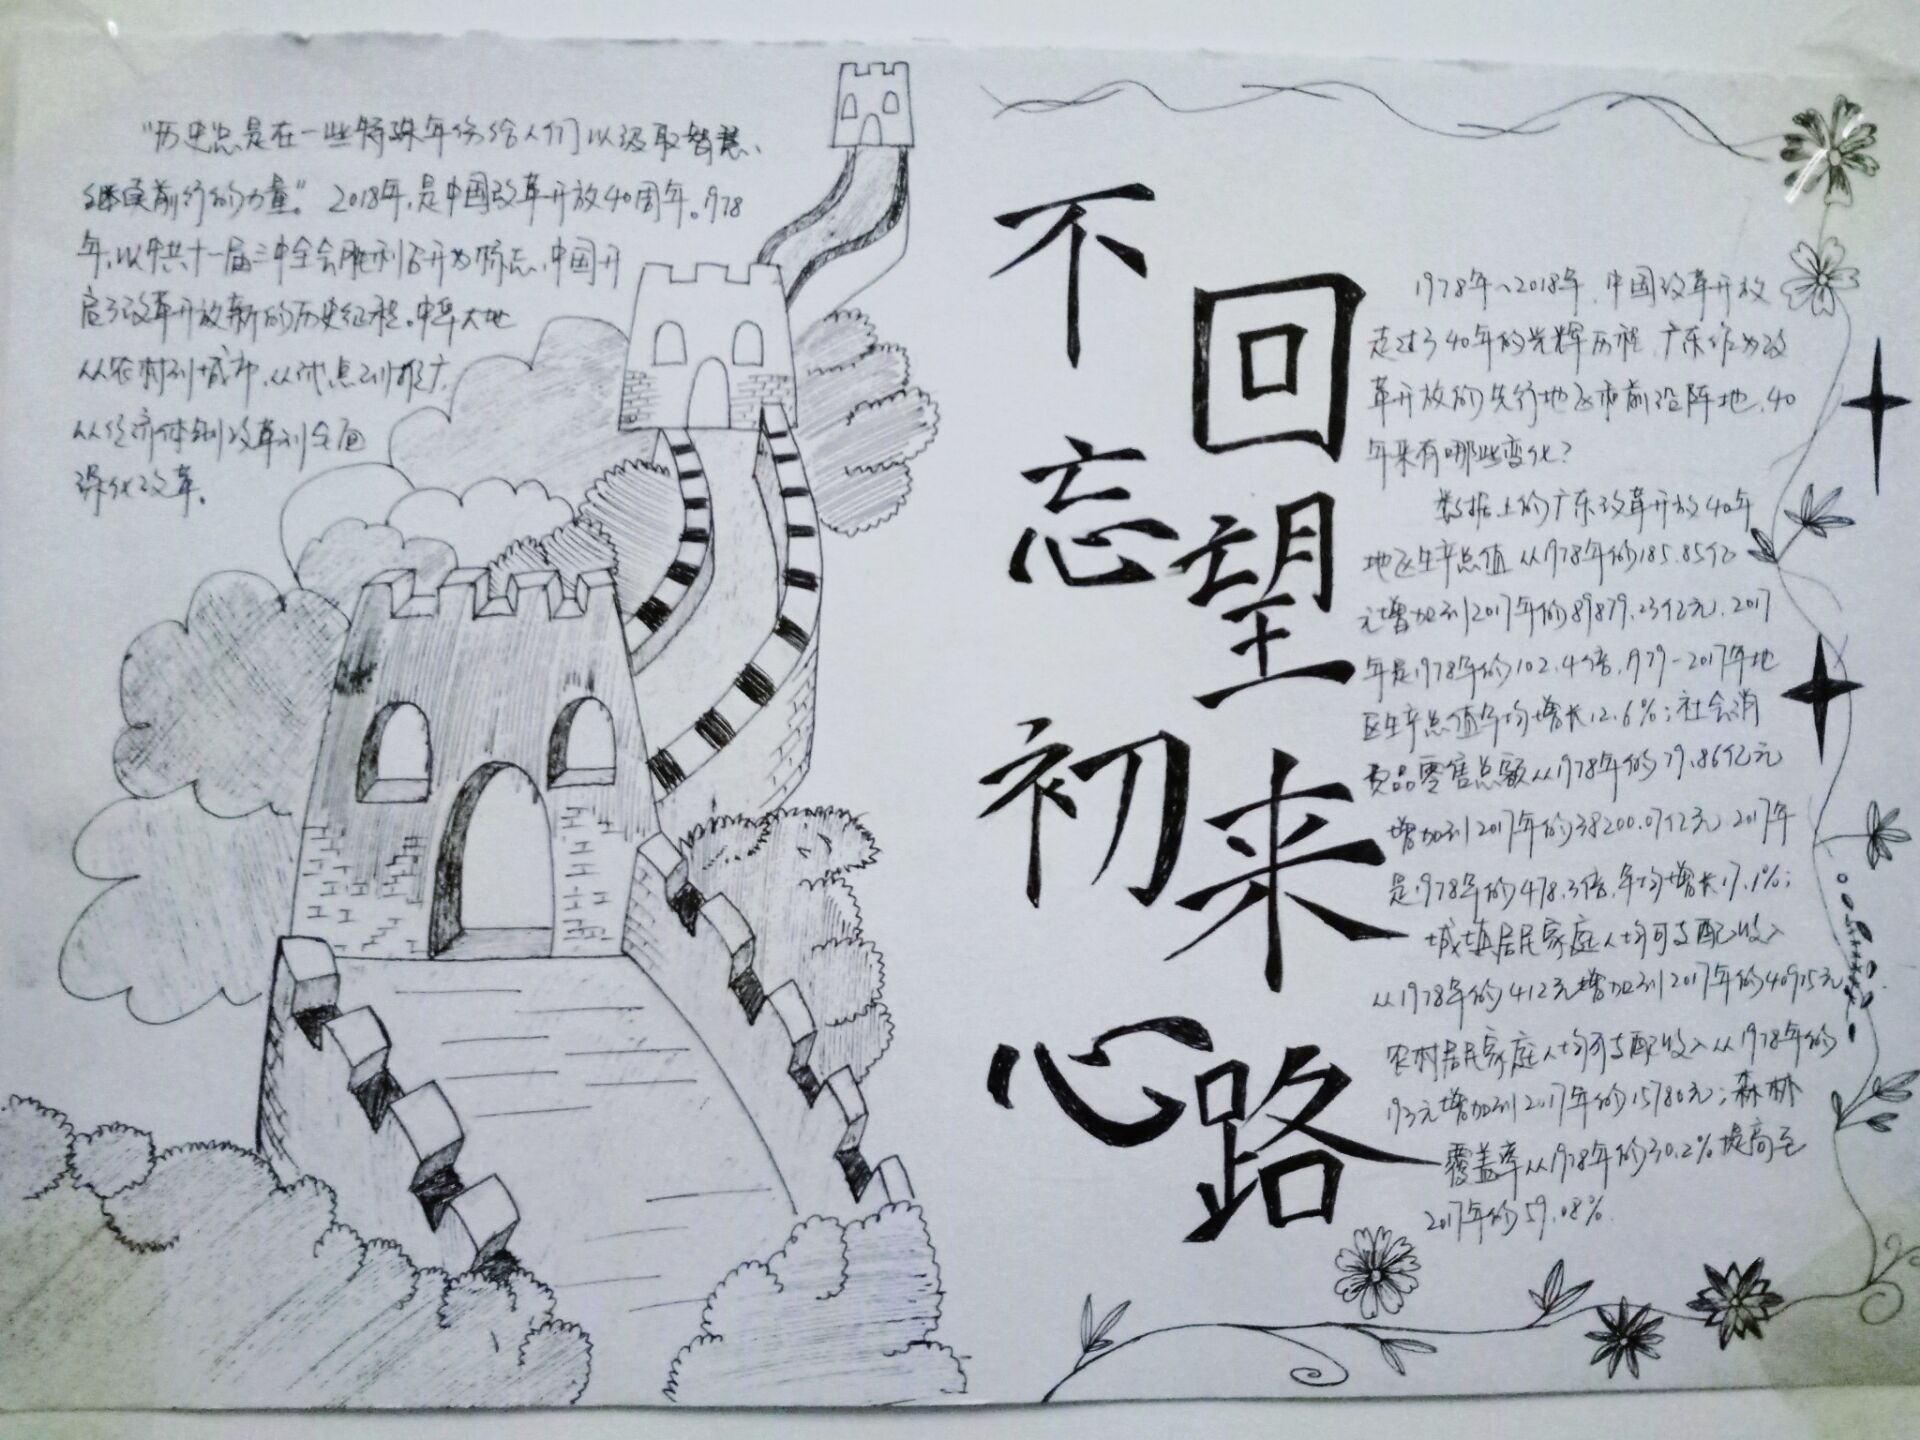 "历史总是在一些特殊年份给人们以汲取智慧、
继续前行的力量"。2018年,是中国改革开放40周年。1978
年,以中共十一届三中全会胜利召开为标志,中国开
启了改革开放新的历史征程。中华大地
从农村到城市,从试点到推广,
从经济体制改革到全面
深化改革。
不忘初心
回望来路
1978年~2018年,中国改革开放
走过了40年的光辉历程,广东作为改
革开放的先行地区和前沿阵地,40
年来有哪些变化?
数据上的广东改革开放40年
地区生产总值从1978年的185.85亿
元增加到2017年的89879.23亿元,2017
年是1978年的102.4倍,1979-2017年地
区生产总值年均增长12.6%;社会消
费品零售总额从1978年的79.86亿元
增加到2017年的38200.07亿元,2017年
是1978年的478.3倍,年均增长17.1%;
城镇居民家庭人均可支配收入
从1978年的412元增加到2017年的40975元
农村居民家庭人均可支配收入从1978年的
193元增加到2017年的15780元;森林
覆盖率从1978年的30.2%提高至
2017年的59.08%.